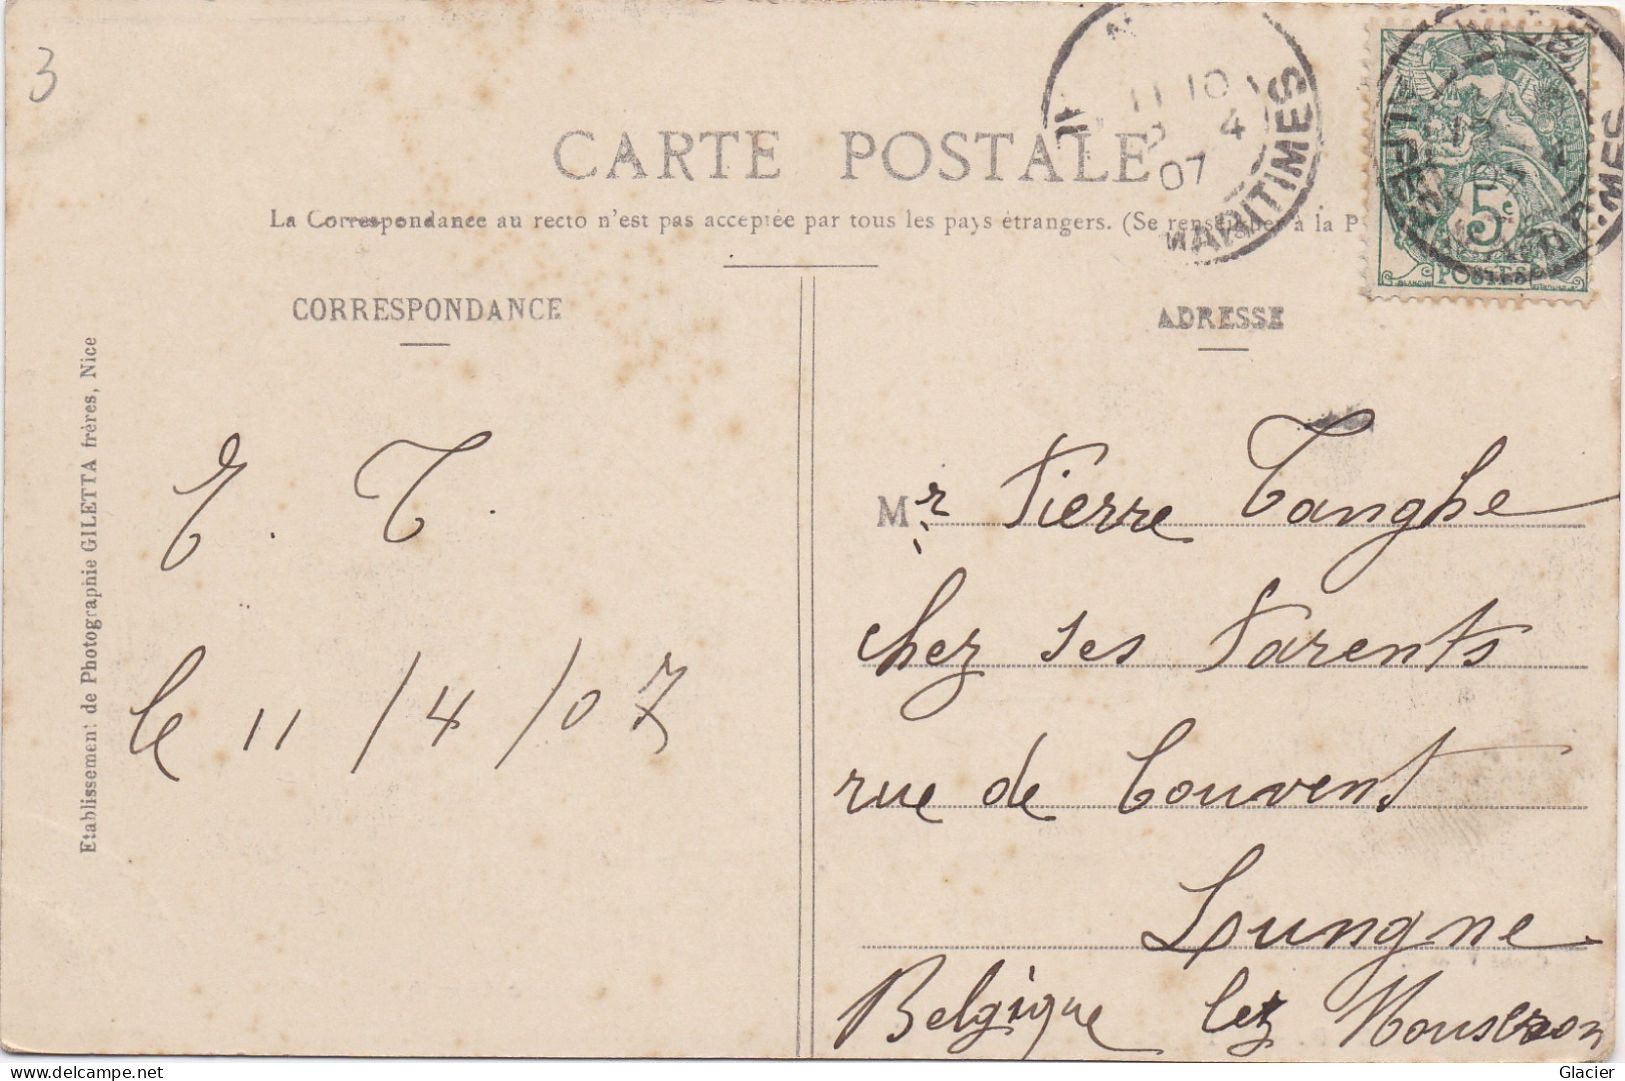 3
CARTE POSTALE
La Correspondance au recto n'est pas acceptée par tous les pays étrangers. (Se renseigner à la P
CORRESPONDANCE
ADRESSE
NICE
11 10
4
07
MARITIMES
5c
POSTES
Etablissement de Photographie GILETTA frères, Nice
E. T.
le 11/4/07
Mr Pierre Tanghe
chez ses Parents
rue de Couvent
Luingne
Belgique lez Mouscron
Glacier